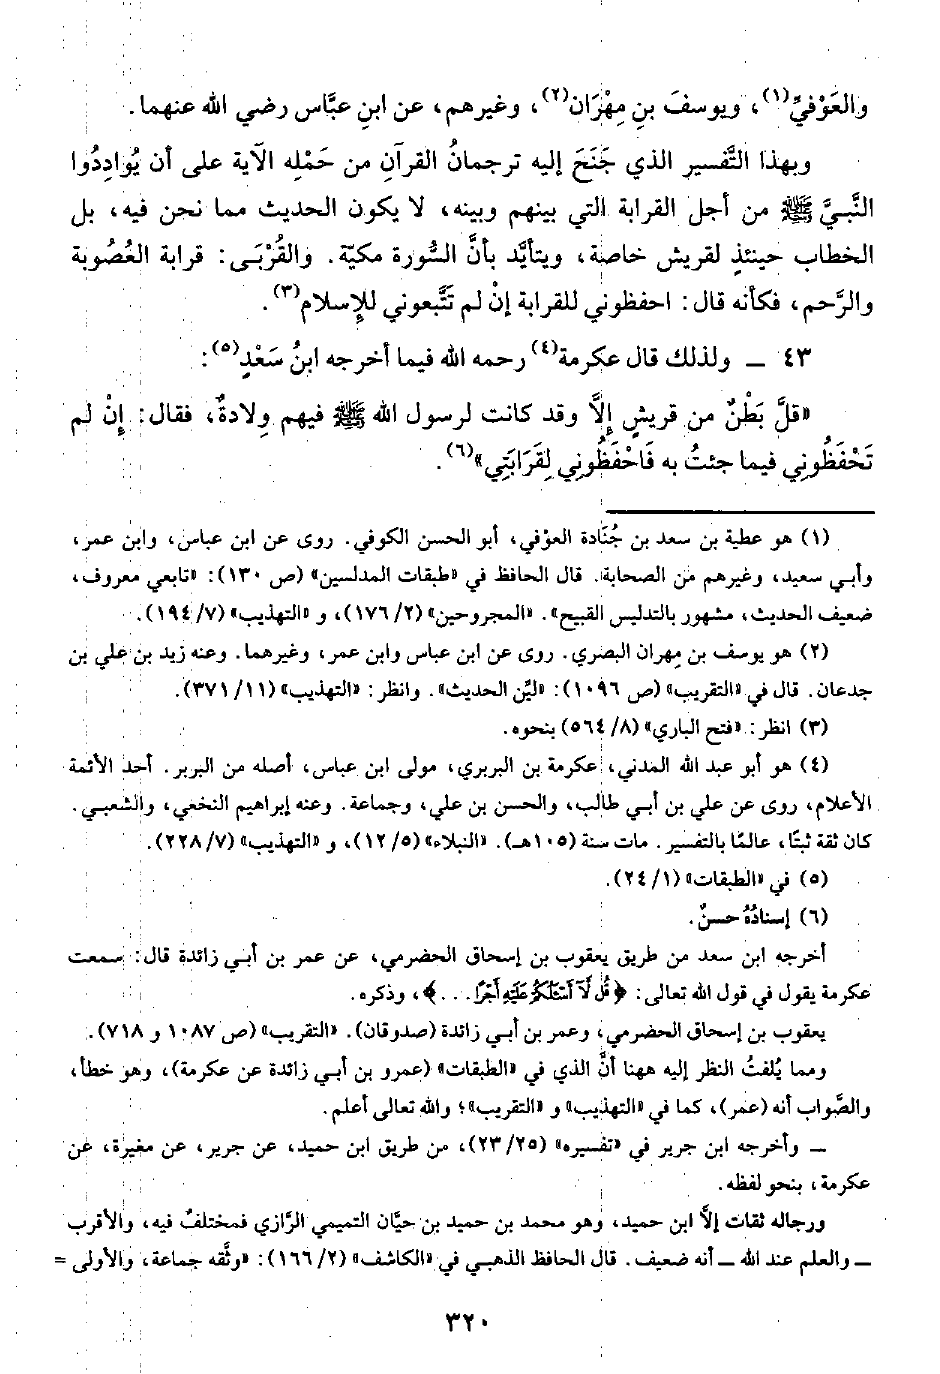 والعَوْفيِّ(١)، ويوسفَ بنِ مِهْرَان(٢)، وغيرهم، عن ابنِ عبَّاس رضي الله عنهما.
وبهذا التَّفسير الذي جَنَحَ إليه ترجمانُ القرآنِ من حَمْلِه الآية على أن يُوادِدُوا
النَّبيَّ ﷺ من أجل القرابة التي بينهم وبينه، لا يكون الحديث مما نحن فيه، بل
الخطاب حينئذٍ لقريش خاصة، ويتأيَّد بأنَّ السُّورة مكيّة. والقُرْبَى: قرابة العُصُوبة
والرَّحم، فكأنه قال: احفظوني للقرابة إنْ لم تَتَّبعوني للإسلام(٣).
٤٣ ــ ولذلك قال عكرمة(٤) رحمه الله فيما أخرجه ابنُ سَعْدٍ(٥):
«قلَّ بَطْنٌ من قريشٍ إلَّا وقد كانت لرسول الله ﷺ فيهم وِلادةٌ، فقال: إنْ لم
تَحْفَظُوني فيما جئتُ به فَاحْفَظُوني لِقَرَابَتِي»(٦).
(١) هو عطية بن سعد بن جُنَادة العوْفي، أبو الحسن الكوفي. روى عن ابن عباس، وابن عمر،
وأبي سعيد، وغيرهم من الصحابة. قال الحافظ في «طبقات المدلسين» (ص ١٣٠): «تابعي معروف،
ضعيف الحديث، مشهور بالتدليس القبيح». «المجروحين» (٢/ ١٧٦)، و «التهذيب» (٧/ ١٩٤).
(٢) هو يوسف بن مهران البصري. روى عن ابن عباس وابن عمر، وغيرهما. وعنه زيد بن علي بن
جدعان. قال في «التقريب» (ص ١٠٩٦): «ليّن الحديث». وانظر: «التهذيب» (١١/ ٣٧١).
(٣) انظر: «فتح الباري» (٨/ ٥٦٤) بنحوه.
(٤) هو أبو عبد الله المدني، عكرمة بن البربري، مولى ابن عباس، أصله من البربر. أحد الأئمة
الأعلام، روى عن علي بن أبي طالب، والحسن بن علي، وجماعة. وعنه إبراهيم النخعي، والشعبي.
كان ثقة ثبتًا، عالمًا بالتفسير. مات سنة (١٠٥هـ). «النبلاء» (٥/ ١٢)، و «التهذيب» (٧/ ٢٢٨).
(٥) في «الطبقات» (١/ ٢٤).
(٦) إسنادُهُ حسنٌ.
أخرجه ابن سعد من طريق يعقوب بن إسحاق الحضرمي، عن عمر بن أبي زائدة قال: سمعت
عكرمة يقول في قول الله تعالى: ﴿قُل لَّا أَسْـَٔلُكُمْ عَلَيْهِ أَجْرًا. . .﴾، وذكره.
يعقوب بن إسحاق الحضرمي، وعمر بن أبي زائدة (صدوقان). «التقريب» (ص ١٠٨٧ و ٧١٨).
ومما يُلفتُ النظر إليه ههنا أنَّ الذي في «الطبقات» (عمرو بن أبي زائدة عن عكرمة)، وهو خطأ،
والصَّواب أنه (عمر)، كما في «التهذيب» و «التقريب»؛ والله تعالى أعلم.
ــ وأخرجه ابن جرير في «تفسيره» (٢٥/ ٢٣)، من طريق ابن حميد، عن جرير، عن مغيرة، عن
عكرمة، بنحو لفظه.
ورجاله ثقات إلَّا ابن حميد، وهو محمد بن حميد بن حيَّان التميمي الرَّازي فمختلفٌ فيه، والأقرب
ــ والعلم عند الله ــ أنه ضعيف. قال الحافظ الذهبي في «الكاشف» (٢/ ١٦٦): «وثَّقه جماعة، والأولى =
٣٢٠